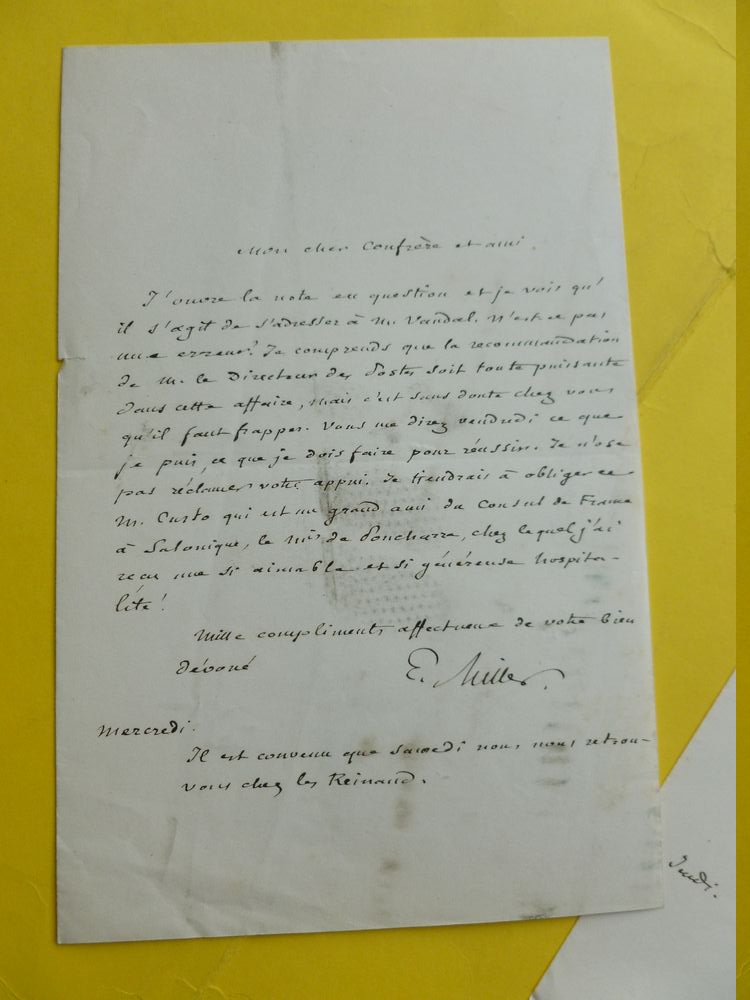 Mon cher Confrère et ami.
J'ouvre la note en question et je vois qu'
il s'agit de s'adresser à M. Vandal. N'est ce pas
une erreur? Je comprends que la recommandation
de M. le Directeur des Postes soit toute puissante
dans cette affaire, mais c'est sans doute chez vous
qu'il faut frapper. Vous me direz vendredi ce que
je puis, ce que je dois faire pour réussir. Je n'ose
pas réclamer votre appui. Je tiendrais à obliger ce
M. Custo qui est un grand ami du Consul de France
à Salonique, le Mis de Poncharra, chez lequel j'ai
reçu une si aimable et si généreuse hospita-
lité!
Mille compliments affectueux de votre bien
dévoué
E. Miller.
Mercredi.
Il est convenu que samedi nous nous retrou-
vons chez les Reinaud.
Jeudi.